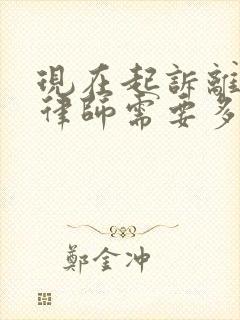 現在起訴離
律師需要多
鄭金冲